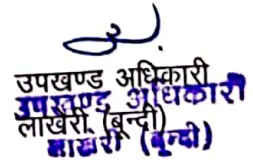 उपखण्ड अधिकारी
उपखण्ड अधिकारी
लाखेरी, (बून्दी)
लाखेरी (बून्दी)